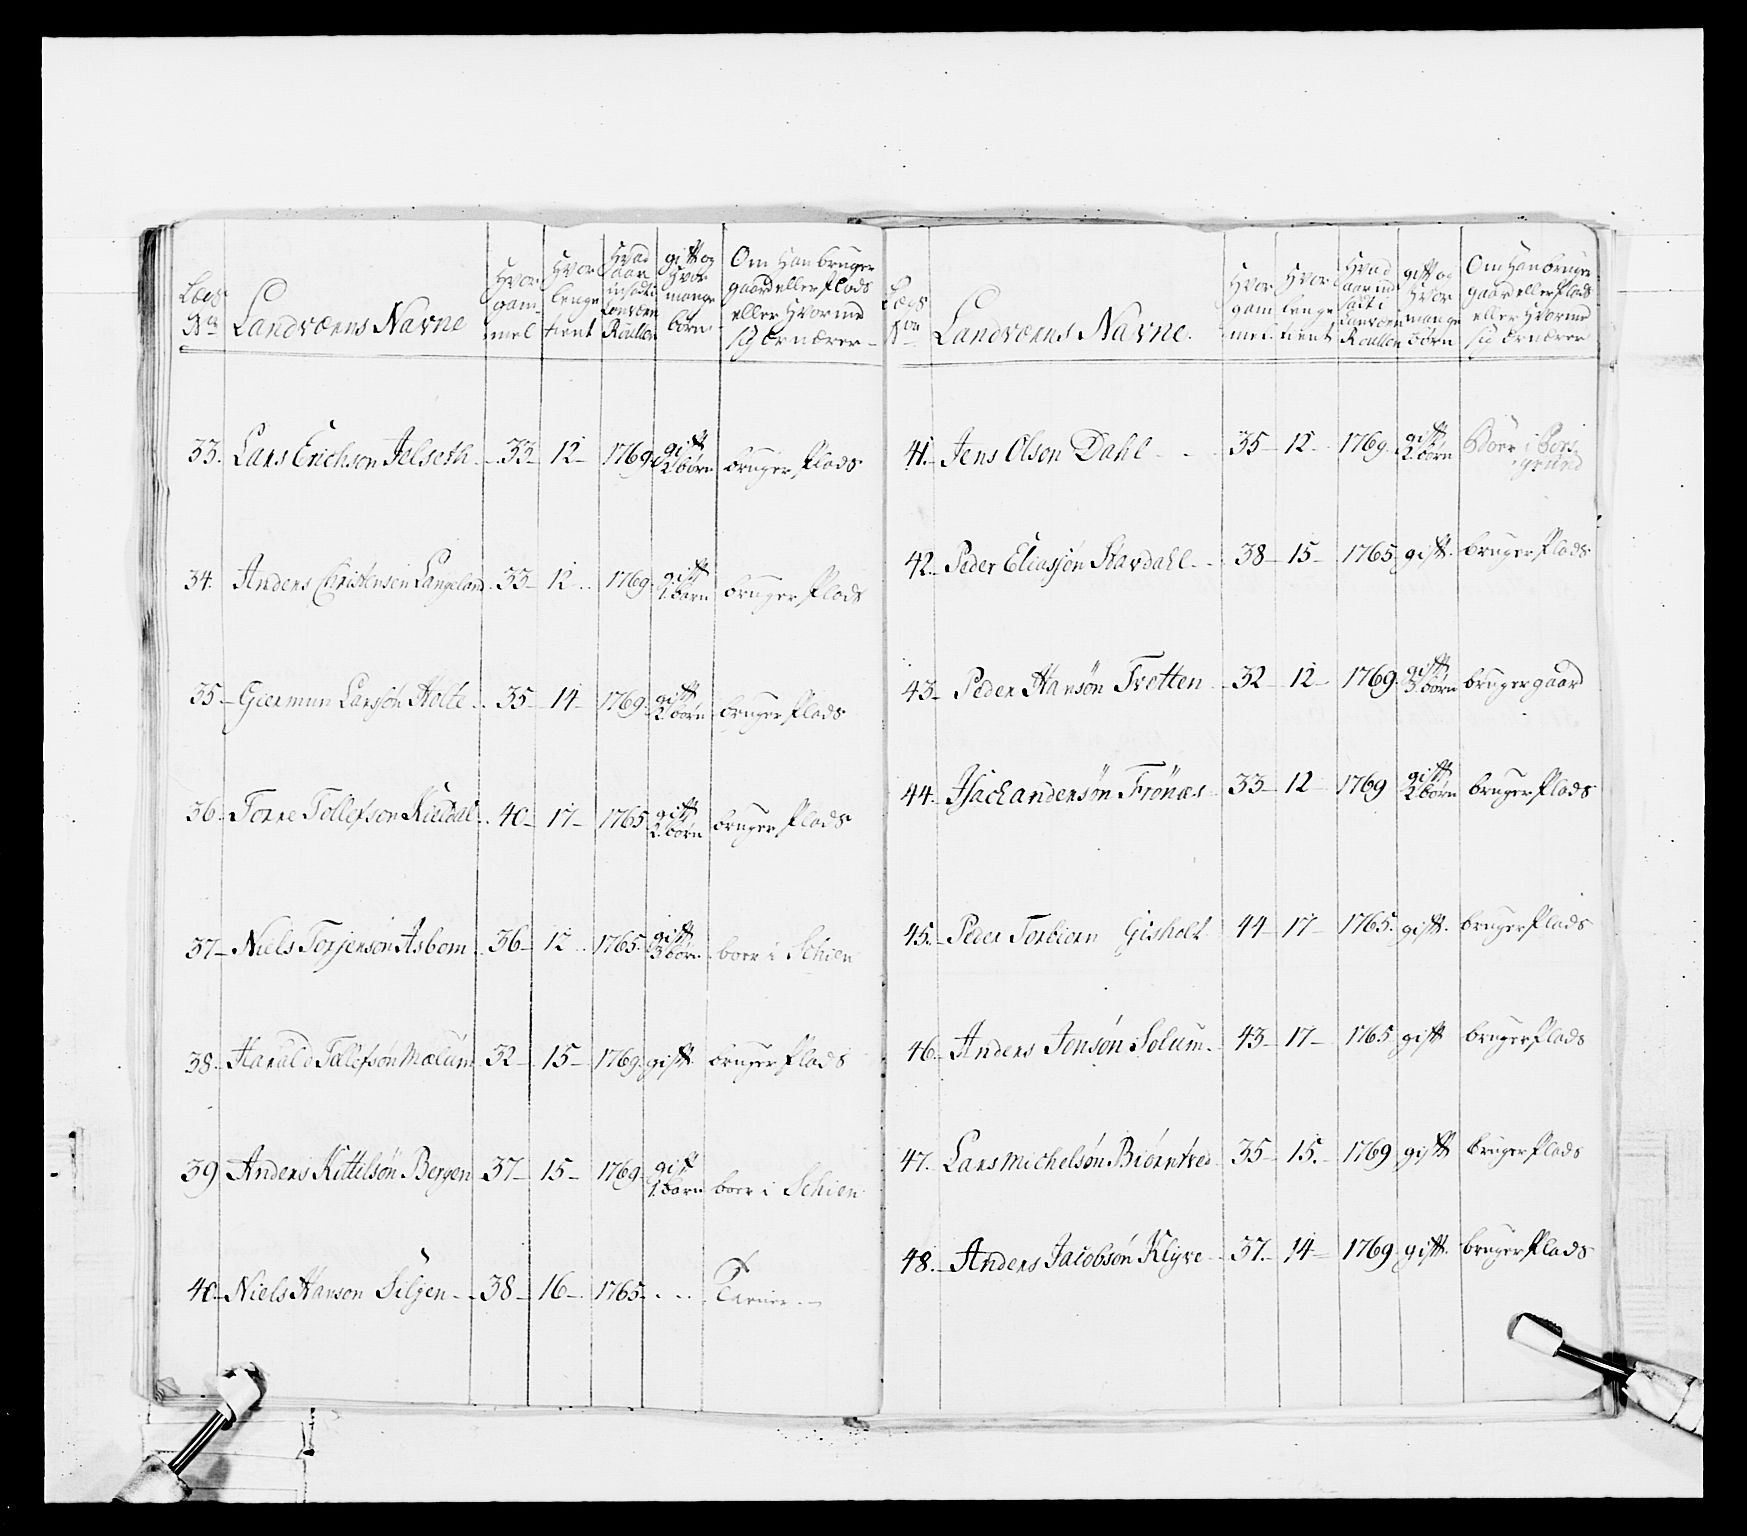 Lægs No | Landværns Navne | Hvor gam- mel | Hvor lenge tient | Hvad aar indsadt i Lanværn Roullen | gift og Hvor mange børn | Om Han bruger gaard eller Plads eller Hvormed sig Ernærer
33. Lars Erichson Jelseth 33 12 1769 gift 2 børn bruger Plads
34. Anders Christensen Langeland 33 12 1769 gift 1. barn bruger Plads
35 Giermun Larsøn Holte 35 14 1769 gift 2 børn bruger Plads
36 Torre Tollefson Kieldal 40 17 1765 gift 2 børn bruger Plads
37 Niels Torjenson Asbom 36 12 1765. gift 3 børn boer i Schien
38. Harald Tollefsøn Mælum 32 15 1769. gift bruger Plads
39 Anders Kittelsøn Bergen 37 15 1769 gift 1. barn boer i Schien
40 Niels Hanson Siljen 38 16 1765 Tiener
Lægs No | Landværns Navne. | Hvor gam mel | Hvor lenge tient | Hvad aar ind sadt i Lanværn Roullen | gift og Hvor mange børn | Om Han bruger gaard eller Plads eller Hvormed sig Ernærer
41. Jens Olson Dahl 35 12 1769. gift 2 børn Boer i Pors grund
42. Peder Eliassøn Skardahl 38 15 1765 gift. bruger Plads
43 Peder Hansøn Tvetten 32 12 1769 gift 3 børn bruger gaard
44. Isach andersøn Frönæs 33 12 1769 gift 2 børn bruger Plads
45. Peder Torbiørn Gisholt 44 17 1765. gift. bruger Plads
46. Anders Jensøn Solum 43 17 1765 gift bruger Plads
47. Lars Michelsøn Biørntved 35 15. 1769 gift bruger Plads
48. Anders Jacobsøn Klyve 37. 14 1769 gift. bruger Plads